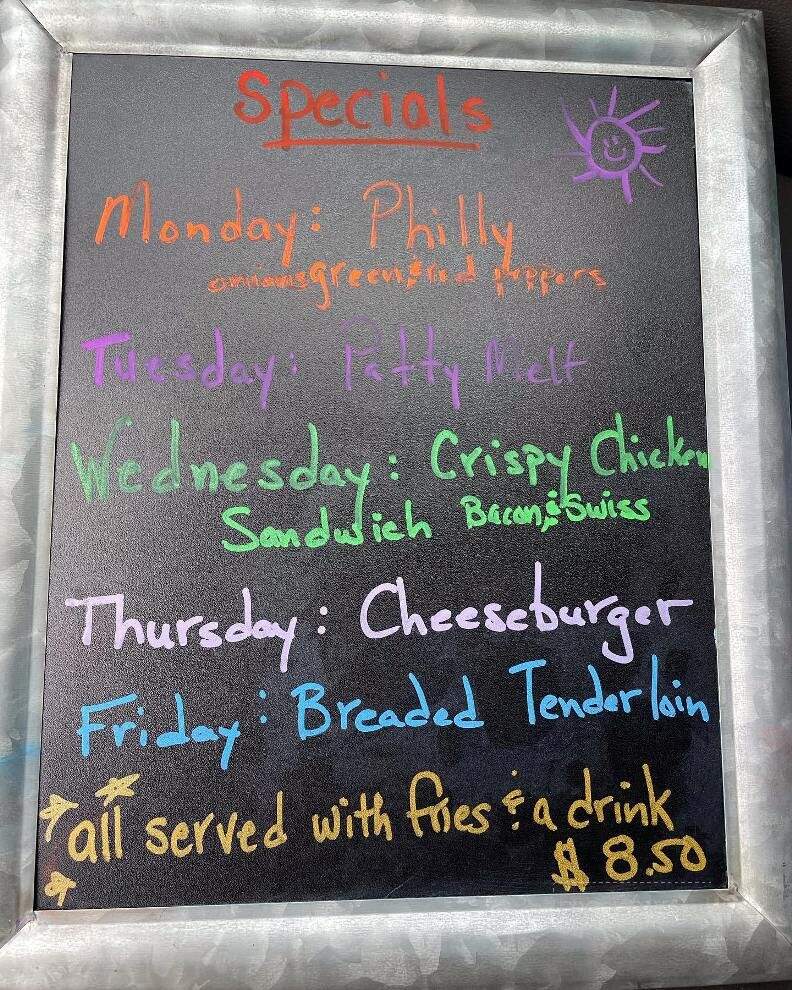 Specials
Monday: Philly
onnions green & red peppers
Tuesday: Patty Melt
Wednesday: Crispy Chicken
Sandwich Bacon & Swiss
Thursday: Cheeseburger
Friday: Breaded Tenderloin
all served with fries & a drink
$8.50